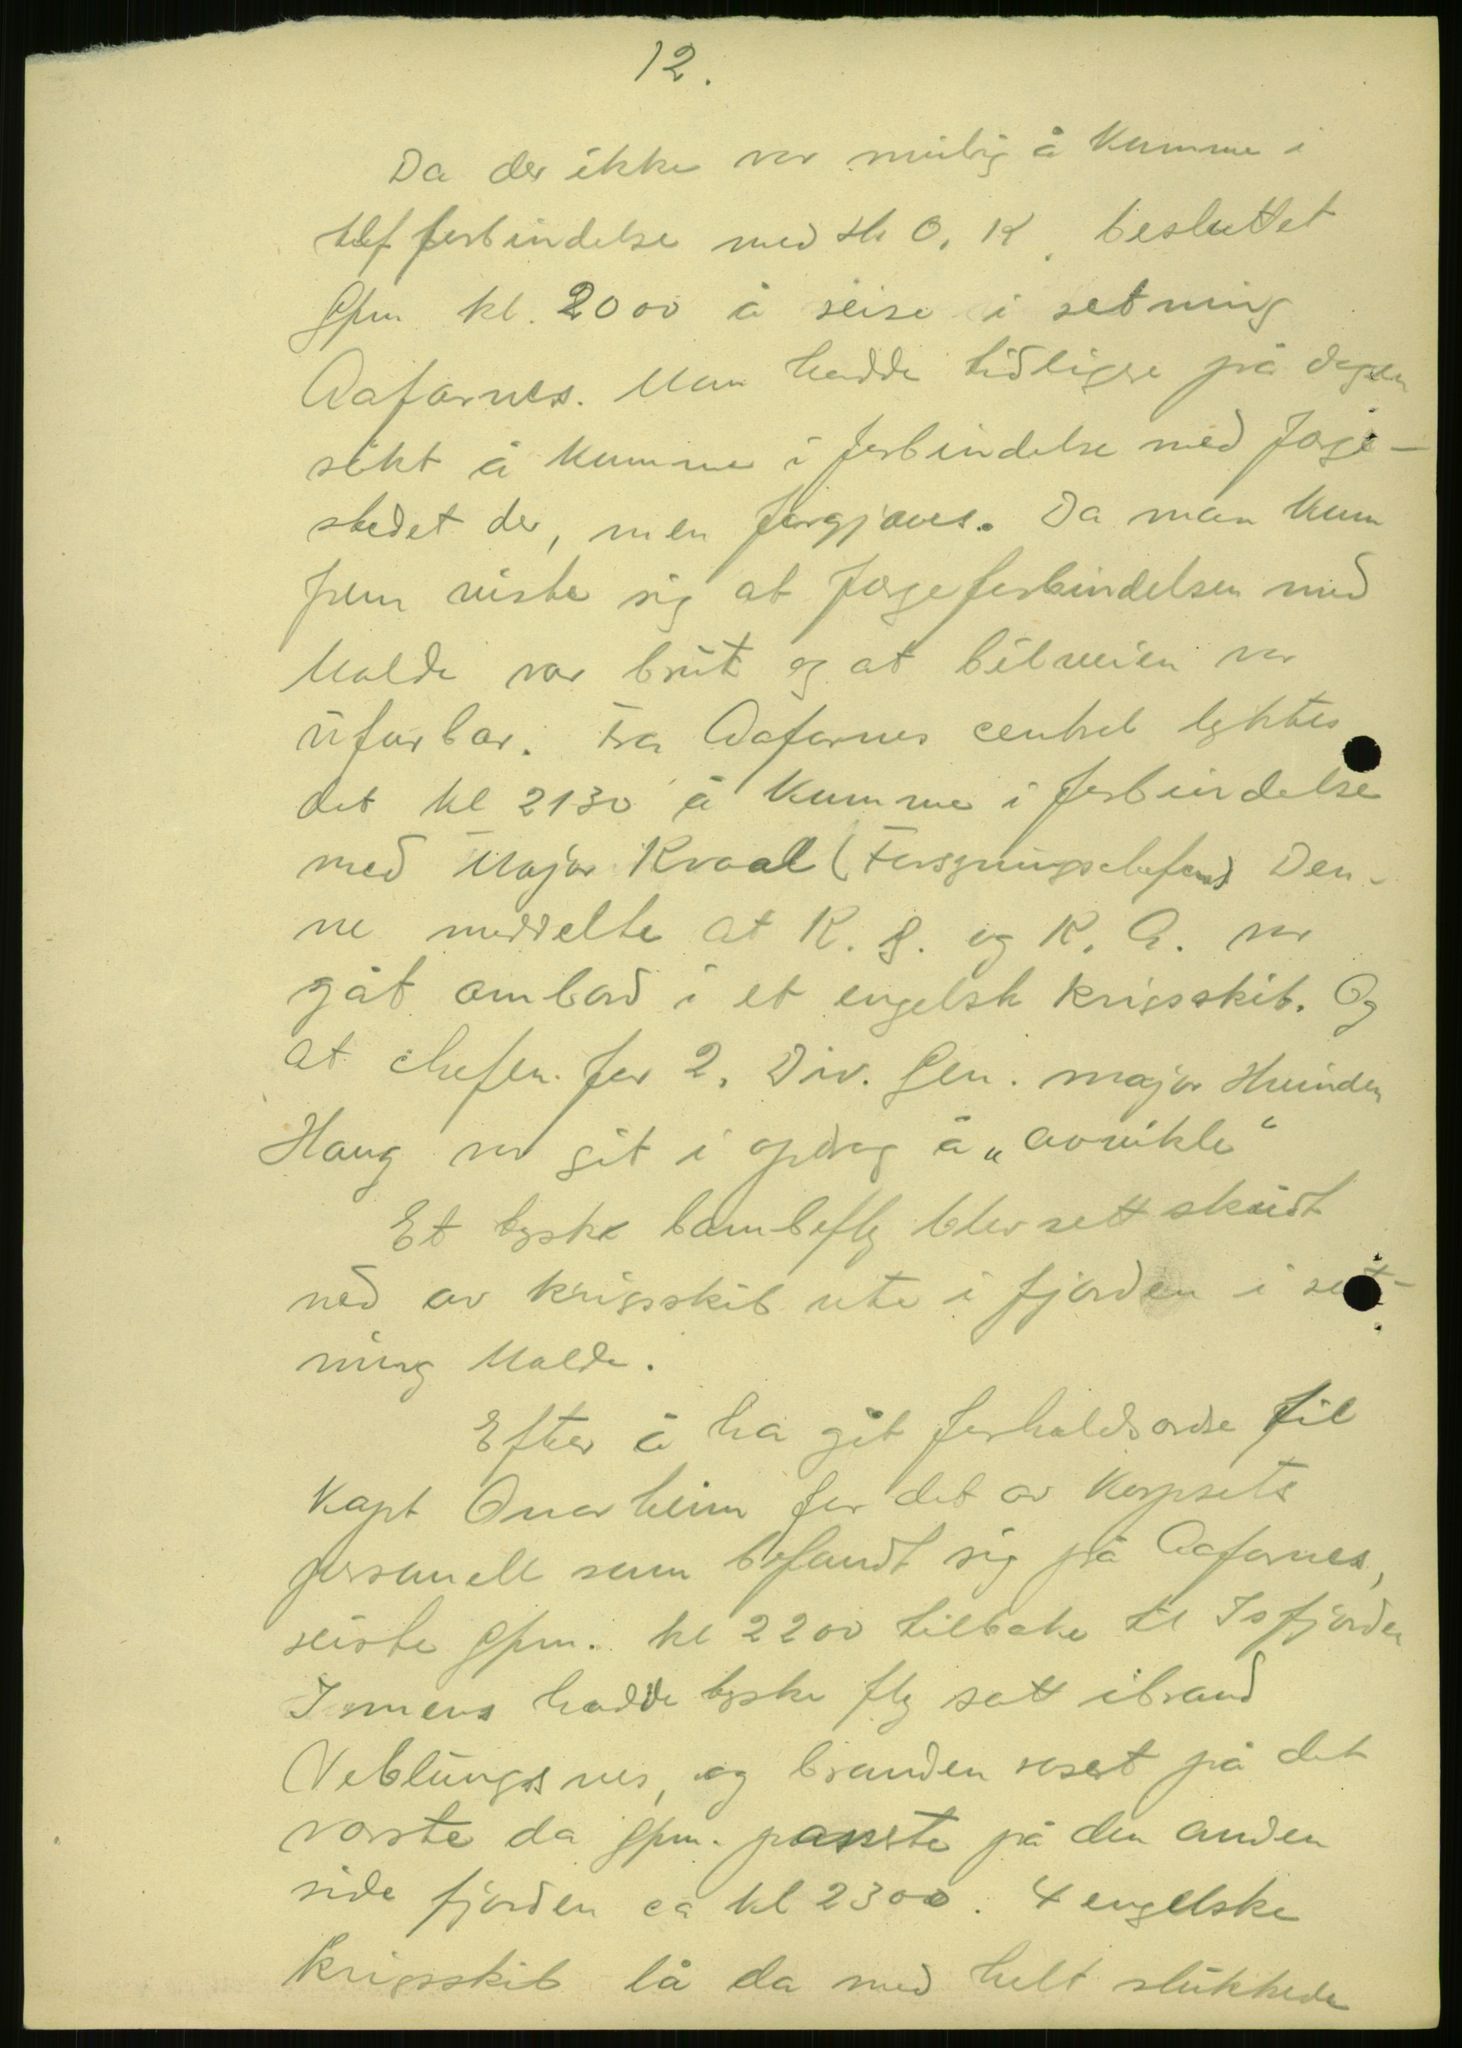 12.
Da der ikke var mulig å komme i
tlf forbindelse med H. O. K. besluttet
Gpm kl. 2000 å reise i retning
Aafarnes. Man hadde tidligere på dagen
søkt å komme i forbindelse med færge-
stedet der, men forgjæves. Da man kom
frem viste sig at færgeforbindelsen med
Molde var brut og at bilveien var
ufarbar. Fra Aafarnes central lyktes
det kl 2130 å komme i forbindelse
med Major Kvaal (Forsyningschefen) Den-
ne meddelte at K. R. og K. A. var
gåt ombord i et engelsk krigsskib. Og
at chefen for 2. Div. Gen. major Hvinden
Haug var git i opdrag å "avvikle"
Et tyske bombefly blev sett skudt
ned av krigsskib ute i fjorden i ret-
ning Molde.
Efter å ha git forholdsordre til
Kapt Onarheim for det av korpsets
personell som befandt sig på Aafarnes,
reiste Gpm. kl 2200 tilbake til Isfjorden
Immens hadde tyske fly satt ibrand
Veblungsnes, og branden raset på det
værste da Gpm. passerte på den anden
side fjorden ca kl 2300. 4 engelske
krigsskib lå da med helt slukkede